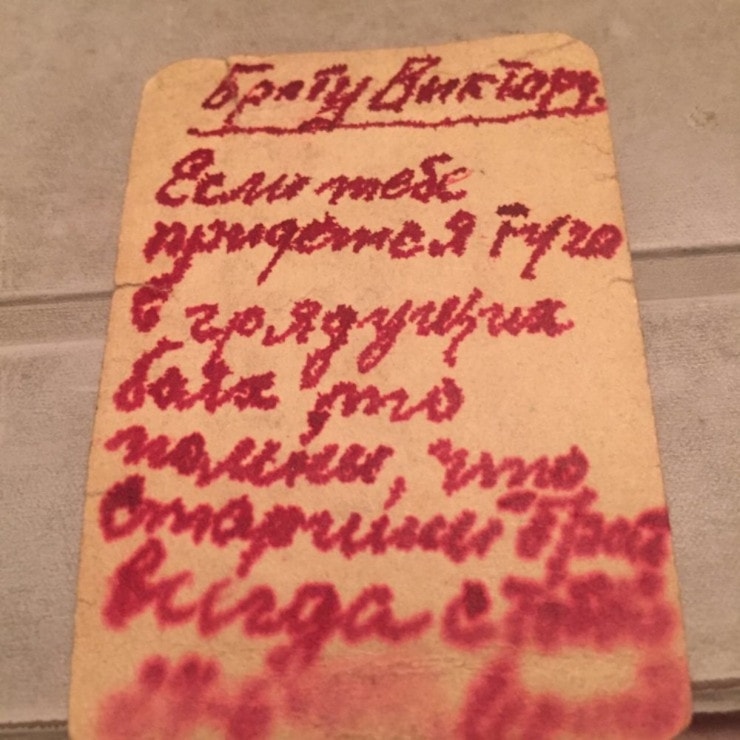 Брату Виктору.
Если тебе
придется туго
в грядущих
боях, то
помни, что
старший брат
всегда с тобой